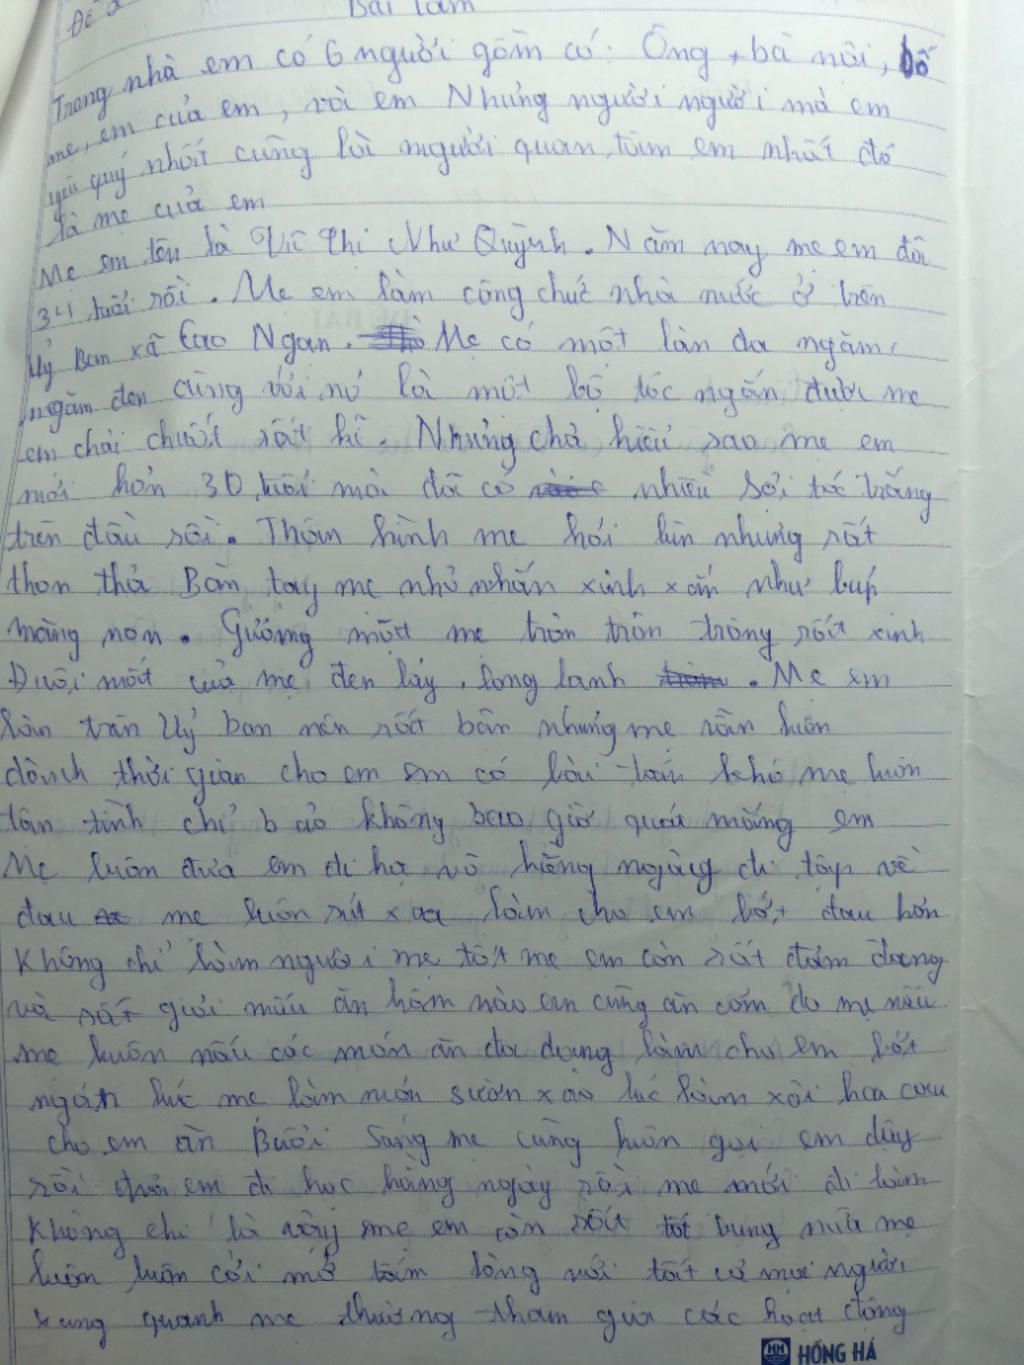 Đề 2
Bài làm
Trong nhà em có 6 người gồm có: Ông, bà nội, bố
mẹ, em của em, và em Nhưng người người mà em
yêu quý nhất cũng là người quan tâm em nhất đó
là mẹ của em
Mẹ em tên là Vũ Thị Như Quỳnh. Năm nay mẹ em đã
34 tuổi rồi. Mẹ em làm công chức nhà nước ở trên
Uỷ Ban xã Cao Ngạn. Mẹ có một làn da ngăm
ngăm đen cùng với nó là một bộ tóc ngắn được mẹ
em chải chuốt rất kĩ. Nhưng chả hiểu sao mẹ em
mới hơn 30 tuổi mà đã có nhiều sợi tóc trắng
trên đầu rồi. Thân hình mẹ hơi lùn nhưng rất
thon thả Bàn tay mẹ nhỏ nhắn xinh xắn như búp
măng non. Gương mặt mẹ tròn trông rất xinh
Đôi mắt của mẹ đen láy, long lanh. Mẹ em
làm trên Uỷ ban nên rất bận nhưng mẹ vẫn luôn
dành thời gian cho em em có bài toán khó mẹ luôn
tận tình chỉ bảo không bao giờ quát mắng em
Mẹ luôn đưa em đi học võ hằng ngày đi tập về
đau mẹ luôn xoa làm cho em bớt đau hơn
Không chỉ làm người mẹ tốt mẹ em còn rất đảm đang
và rất giỏi nấu ăn hôm nào em cũng ăn cơm do mẹ nấu
mẹ luôn nấu các món ăn đa dạng làm cho em bớt
ngán lúc mẹ làm món sườn xào lúc làm xôi hoa cau
cho em ăn Buổi sáng mẹ cũng luôn gọi em dậy
rồi đưa em đi học hằng ngày rồi mẹ mới đi làm
Không chỉ là vậy mẹ em còn rất tốt bụng nữa mẹ
luôn luôn cởi mở tấm lòng với tất cả mọi người
xung quanh mẹ thường tham gia các hoạt động
HỒNG HÀ